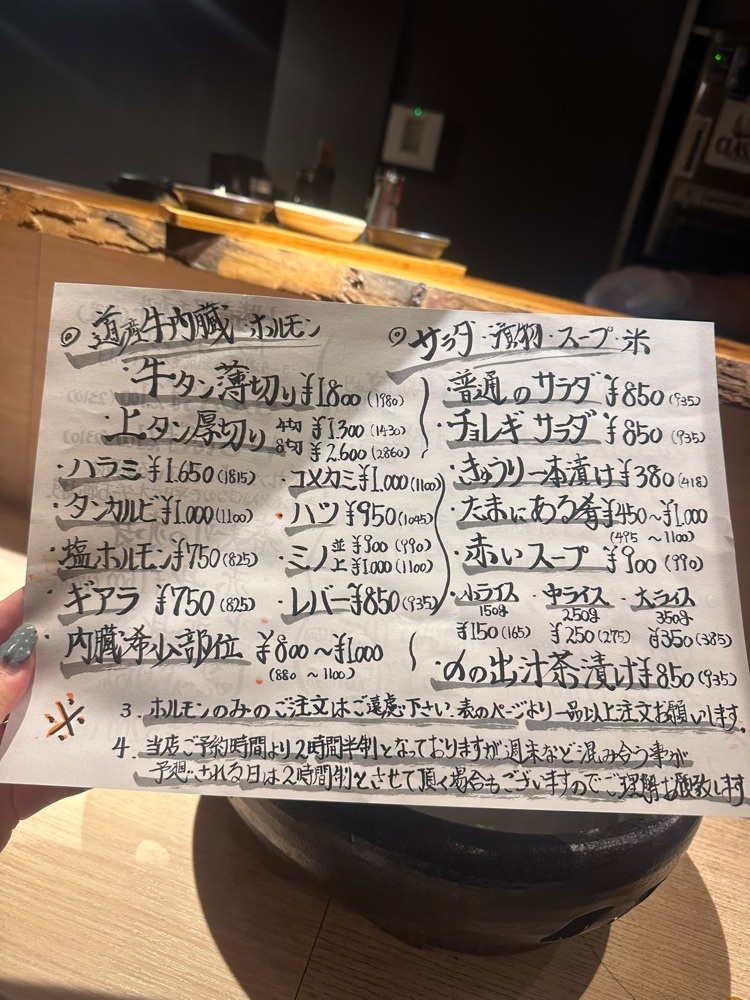 ◎道産牛内臓・ホルモン
・牛タン薄切り ¥1800(1980)
・上タン厚切り 4切 ¥1.300(1430)
8切 ¥2.600(2860)
・ハラミ ¥1.650(1815)
・コメカミ ¥1.000(1100)
・タンカルビ ¥1.000(1100)
・ハツ ¥950(1045)
・塩ホルモン ¥750(825)
・ミノ 並 ¥900(990)
上 ¥1000(1100)
・ギアラ ¥750(825)
・レバー ¥850(935)
・内臓希少部位 ¥800〜¥1000
(880〜1100)
◎サラダ・漬物・スープ・米
・普通のサラダ ¥850(935)
・チョレギサラダ ¥850(935)
・きゅうり一本漬け ¥380(418)
・たまにある肴 ¥450〜¥1.000
(495〜1100)
・赤いスープ ¥900(990)
・小ライス ・中ライス ・大ライス
150g 250g 350g
¥150(165) ¥250(275) ¥350(385)
・〆の出汁茶漬け ¥850(935)
※
3. ホルモンのみのご注文はご遠慮下さい。表のページより一品以上注文お願いします。
4. 当店ご予約時間より2時間半制となっておりますが週末など混み合う事が
予想される日は2時間制とさせて頂く場合もございますのでご理解お願い致します
CLAS